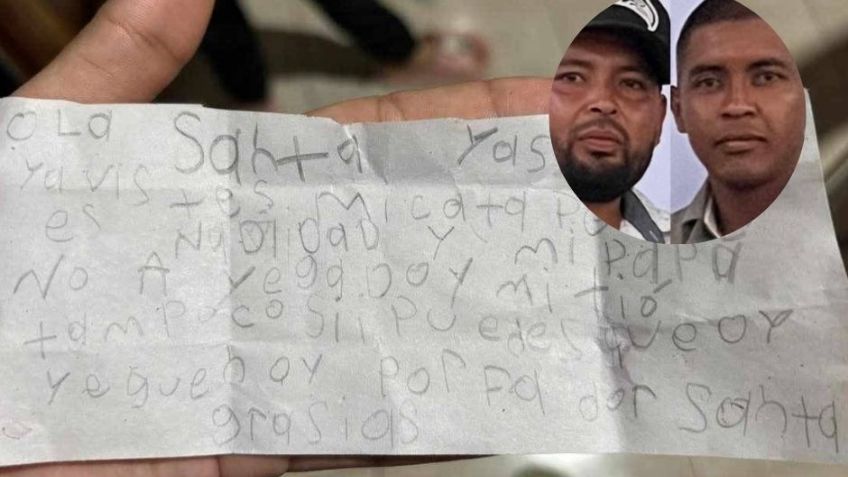 OLa Santa Yas
Yavis tes mi cata
es NabiDaD Y mi papa
No A YegaDoY mi tió
tampoco Sii puedes que oy
yeguen oy por Fa dor Santa
grasias